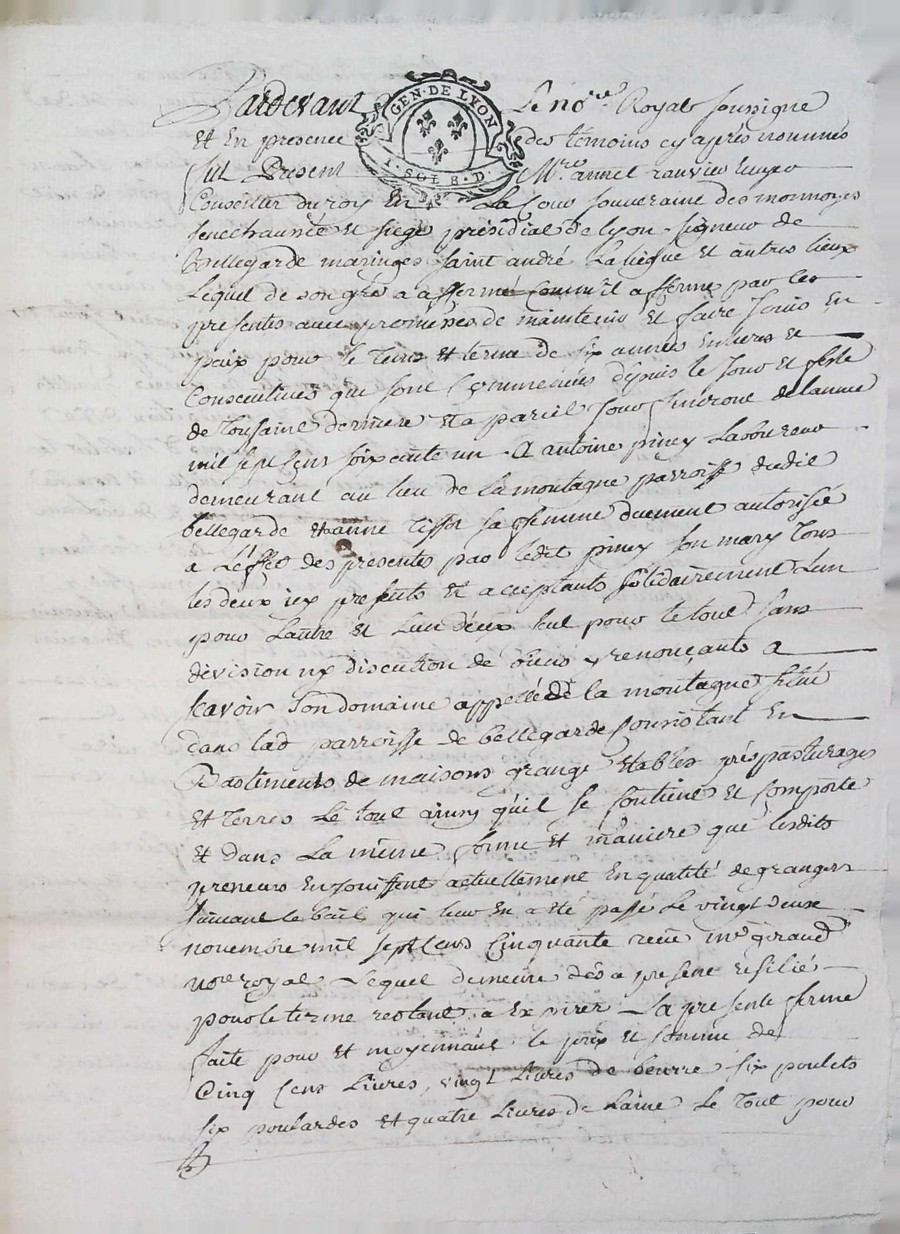 Pardevant Le no.re Royal soussigné
GEN. DE LYON
1. SOL 8. D.
Et En presence des temoins cy apres nommés
fut Present M.re annet ranvier Ecuyer
Conseiller du roy En La Cour souveraine des monnoyes
senechaussée et siege présidial de lyon seigneur de
bellegarde maringes saint andré La liegue et autres lieux
Lequel de son gré a affermé comm'il afferme par les
presentes avec promesses de maintenir et faire jouir En
paix pour le tems et terme de six années Entieres et
Consecutives qui sont Commencées depuis le jour et feste
de toussaint derniere et a pareil jour finiront de lannée
mil sept cens soixante un A antoine piney Laboureur
demeurant au lieu de la montagne parroisse dudit
bellegarde et anne tissot sa femme duement autorisée
a L'effet des presentes par ledit piney son mary tous
les deux icy presents et acceptants solidairement L'un
pour Lautre et L'un d'eux seul pour le tout sans
division ny discution de biens y renonçants a
scavoir son domaine appellé de la montagne situé
dans lad parroisse de bellegarde Consistant En
Bastiments de maisons grange Etables prés pasturages
et terres Le tout ainsy qu'il se Contient et Comporte
et dans La même forme et maniere que lesdits
preneurs En jouissent actuellement En qualité de grangers
suivant le bail qui leur En a été passé Le vingt deux
novembre mil sept cens Cinquante reçu m.e giraud
no.re royal Lequel demeure dés a present résilié
pour le terme restant a Expirer La presente ferme
faite pour et moyennant le prix et somme de
Cinq Cens Livres, vingt Livres de beurre six poulets
six poulardes et quatre Livres de Laine Le tout pour